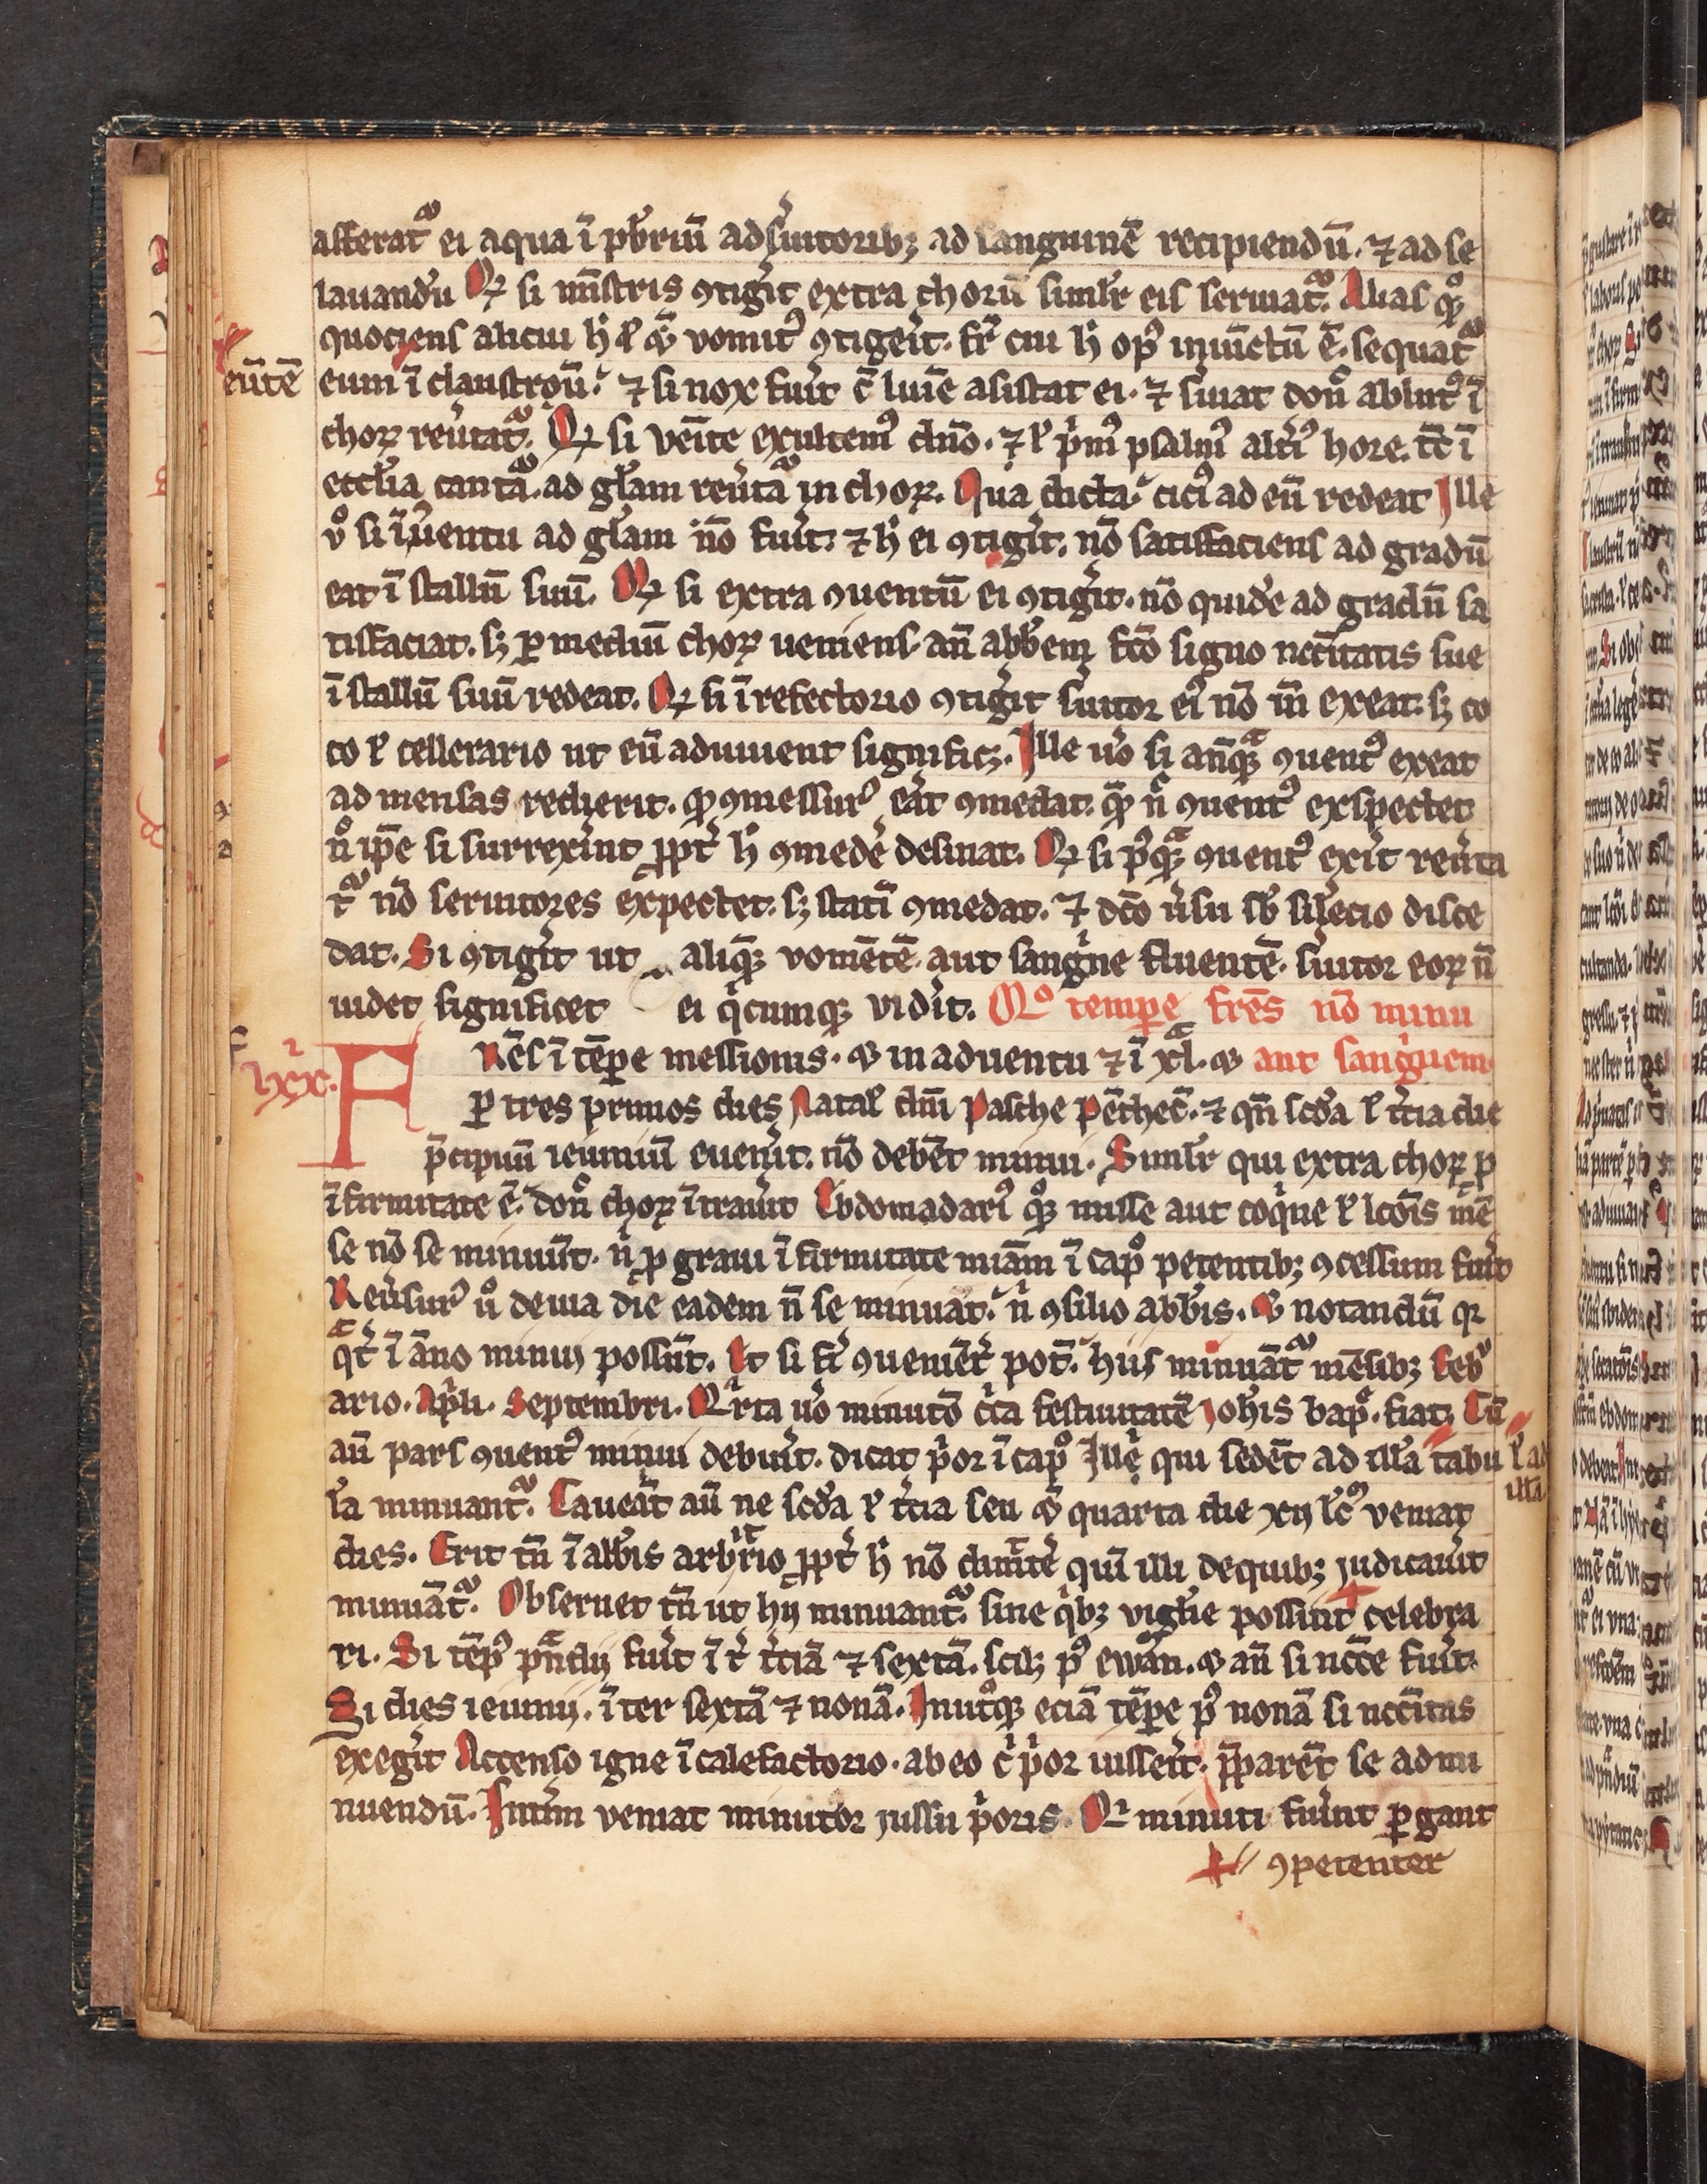 afferat᷑ ei aqua ī pb̄riū ad s̓uitorib; ad sanguinē recipiendū. ⁊ ad se
lauandū Qꝫ si mīstris ꝯtig̓it extra chorū simlr̄ eis seruiat᷑. Alias qͦꝫ
quociens alicui h̓ ł qͣ vomitꝰ ꝯtigeīt. fr̄ cui h̓ opꝰ iniūctū ē. sequat᷑
eūtē eum ī claustrou᷑. ⁊ si nox fuīt c̄ luīe asistat ei. ⁊ s̓uiat don̄ ablutꝰ ī
choꝝ reu̓tat᷑. Qꝫ si ven̄te exultemꝰ dn̄o. ⁊ ł p̓mꝰ psalmꝰ alt̓iꝰ hore. tc̄ ī
ecclia cantā. ad gl̄am reu̓ta᷑ in choꝝ. Qua dicta. ciciꝰ ad eū redeat Ille
vͦ si ī ꝯuentu ad gl̄am nō fuīt. ⁊ h̓ ei ꝯtig̓it. nō satisfaciens ad gradū
eat ī stallū suū. Qꝫ si extra ꝯuentū ei ꝯtig̓it. nō quidē ad gradū sa
tisfaciat. sꝫ ꝑ mediū choꝝ ueniens. an̄ abb̄em fc̄o signo nec̄itatis sue
ī stallū suū redeat. Qꝫ si ī refectorio ꝯtig̓it s̓uitor eiꝰ nō m̄ exeat. sꝫ co
co ł cellerario ut eū adiuuent significꝫ. Ille u̓o si an̄qꝫ ꝯuentꝰ exeat
ad mensas redierit. qꝫ ꝯmessurꝰ eāt ꝯmedat. qꝫ n̄ ꝯuentꝰ exspectet
n̄ ip̄e si surrexīnt ꝓpt̓ h̓ ꝯmedē desinat. Qꝫ si pꝰqꝫ ꝯuentꝰ exīt reu̓ta
t᷑ nō seruitores expectet. sꝫ statī ꝯmedat. ⁊ dc̄o u̓su sb̄ silēcio disce
dat. Si ꝯtig̓it ut aliqꝫ vomētē. aut sang̓ne fluentē. s̓uitor eoꝝ n̄
uidet significet ei q̓cumqꝫ vid̓it. Qͦ temꝑe frēs nō minu
lxx. FRēs ī tēꝑe messionis. ⁊ in aduentu ⁊ ī xl. ⁊ aut sang̓uem
ꝑ tres primos dies Natał dn̄i Pasche Pētheč. ⁊ qn̄ scd̄a ł t̓cia die
p̄cipuū ieiuniū euenīt. nō debēt minui. Simlr̄ qui extra choꝝ p
ī firmitate ē. don̄ choꝝ ītrauīt Ebdomadariꝰ qͦꝫ misse aut coq̓ne ł lcōis mē
se nō se minuūt. n̓ ꝓ graui ī firmitate miām ī capͦ petentib; ꝯcessum fuīt
Reu̓surꝰ uͦ de uia die eadem n̄ se minuat. n̓ ꝯsilio abb̄is. ⁊ notandū qꝛ
qt̓ ī āno minui possūt. Et si fr̄ ꝯueniēt̓ pot̄. hiis minuāt᷑ mēsib; Febꝰ
ario. Ap̓li. Septembri. Qͣrta u̓o minutō c̓ca festiuitatē Johis bap. fiat. Cū
aū pars ꝯuentꝰ minui debuīt. dicat p̓or ī capͦ Illē qui sedēt ad illā tabu ł ad illā
lā minuant᷑. Caueāt aū ne scd̄a ł t̓cia seu qͣ quarta die xij lc̄ꝰ veniat
dies. Erit tn̄ ī abb̄is arbit̓rio ꝓpt̓ h̓ nō dimittē quī illi de quib; judicauīt
minuāt᷑. Obseruet tn̄ ut hij minuant᷑. sine q̓b; vigl̄ie possint celebra
ri. Si tēpꝰ pn̄dij fuīt ī t̓ t̓ciā ⁊ sextā. scilꝫ pꝰ ewān. ⁊ an̄ si nēce fuīt.
Si dies ieiunij. ī ter sextā ⁊ nonā. In utͦqꝫ eciā tēꝑe pꝰ nonā si nec̄itas
exeg̓it Accenso igne ī calefactorio. ab eo c̓ p̓or iusseīt. p̄parēt se ad mi
nuendū. Intīm veniat minutor jussu p̓oris. Qͥ minuti fuīnt ꝑgant
ꝯpetenter